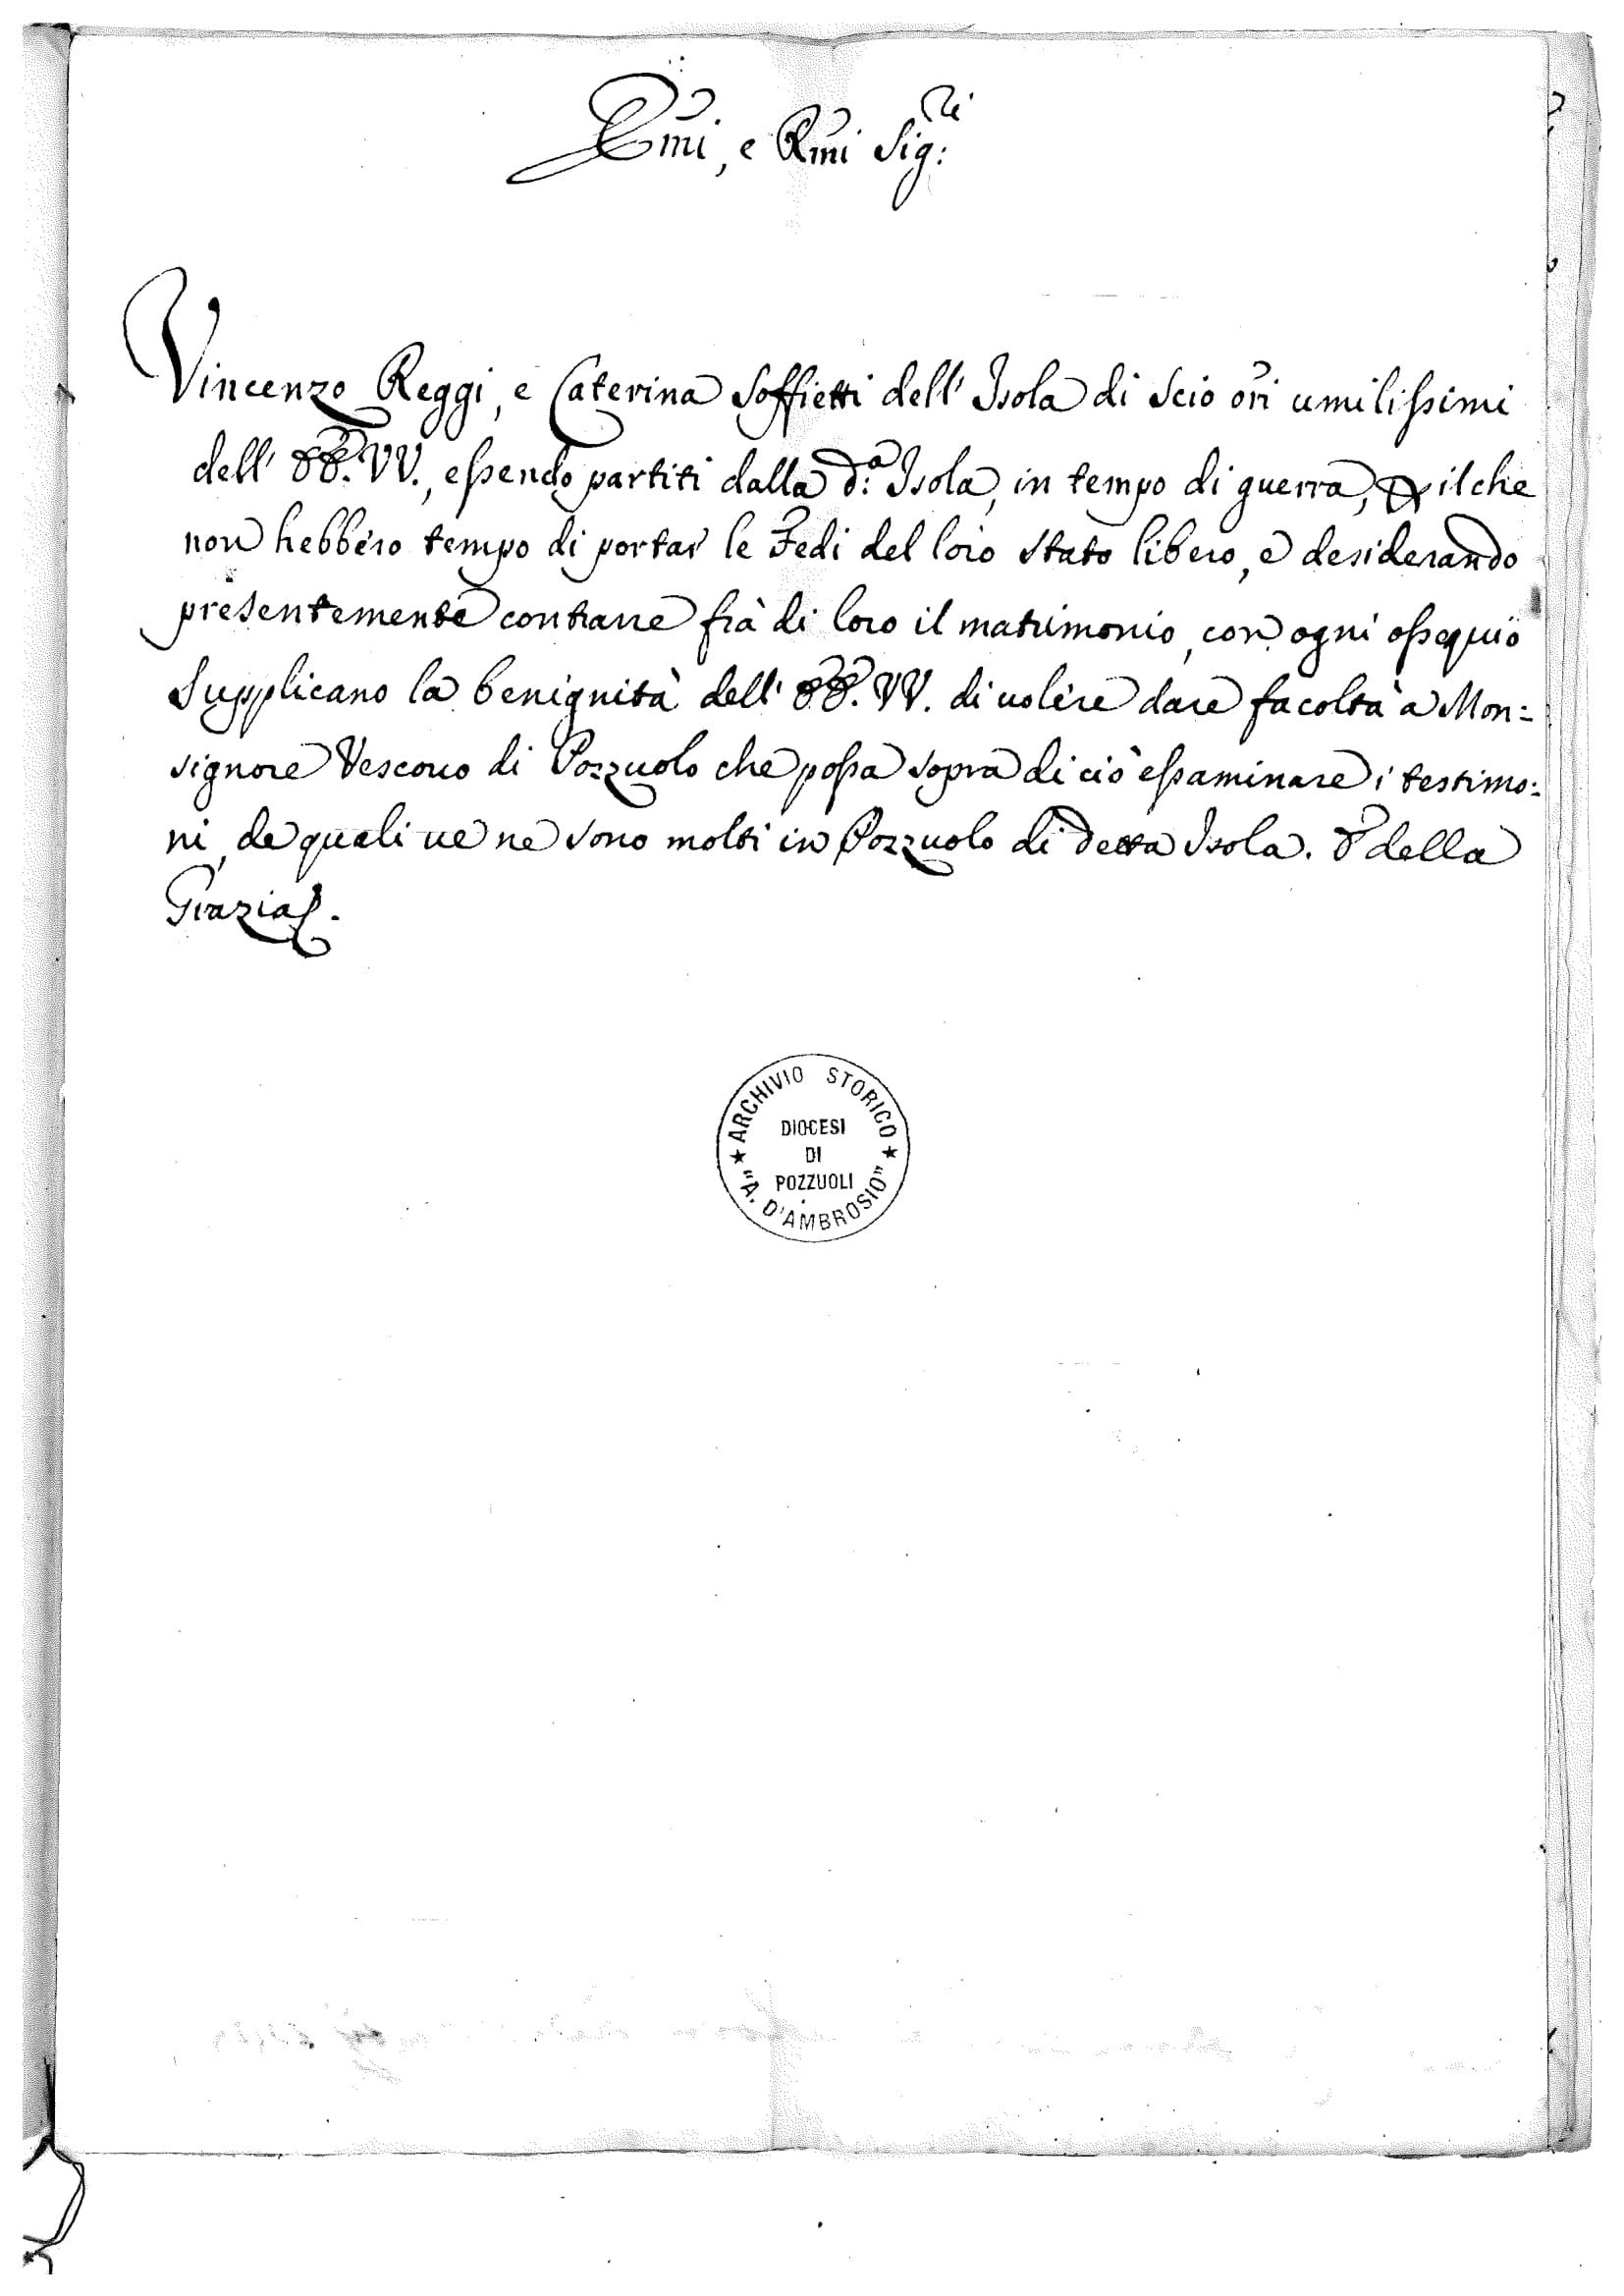 Emi, e Rmi Sig:ri
Vincenzo Reggi, e Caterina Soffietti dell' Isola di Scio ori umilissimi
dell' EE. VV., essendo partiti dalla d:a Isola, in tempo di guerra, per il che
non hebbero tempo di portar le Fedi del loro Stato libero, e desiderando
presentemente contrarre frà di loro il matrimonio, con ogni ossequio
Supplicano la benignità dell' EE. VV. di uolere dare facoltà a Mon:
signore Vescouo di Pozzuolo che possa sopra di ciò essaminare i testimo:
ni, de quali ue ne sono molti in Pozzuolo di detta Isola. E della
Grazia
ARCHIVIO STORICO
DIOCESI
DI
POZZUOLI
"A. D'AMBROSIO"